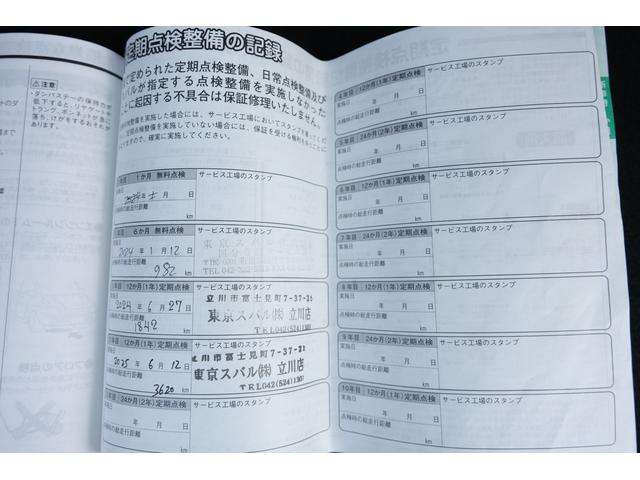 注意
・ダンパステーの保持力が
低下すると、リヤゲートや
トランク、ボンネットが急に
落ち、けがをするおそれが
あります。
定期点検整備の記録
で定められた定期点検整備、日常点検整備及び
バルが指定する点検整備を実施しなかった
とに起因する不具合は保証修理いたしません。
検整備を実施した場合には、サービス工場においてスタンプを
定期点検整備を実施していない場合には、保証を受ける権利を
ますので、確実に実施してください。
1か月 無料点検 サービス工場のスタンプ
実施日
年 月 日
点検時の総走行距離
km
6か月 無料点検 サービス工場のスタンプ
2024年 1月 12日
点検時の総走行距離
982 km
12か月(1年)定期点検 サービス工場のスタンプ
2024年 6月 27日
点検時の総走行距離
1842 km
立川市富士見町7-37-25
東京スバル(株) 立川店
TEL042(524)1301
12か月(1年)定期点検 サービス工場のスタンプ
実施日
2025年 6月 12日
点検時の総走行距離
3620 km
立川市富士見町7-37-25
東京スバル(株) 立川店
TEL042(524)1301
24か月(2年)定期点検 サービス工場のスタンプ
年 月 日
点検時の総走行距離
km
4年目 12か月(1年)定期点検 サービス工場のスタンプ
実施日
年 月 日
点検時の総走行距離
km
5年目 24か月(2年)定期点検 サービス工場のスタンプ
実施日
年 月 日
点検時の総走行距離
km
6年目 12か月(1年)定期点検 サービス工場のスタンプ
実施日
年 月 日
点検時の総走行距離
km
7年目 24か月(2年)定期点検 サービス工場のスタンプ
実施日
年 月 日
点検時の総走行距離
km
8年目 12か月(1年)定期点検 サービス工場のスタンプ
実施日
年 月 日
点検時の総走行距離
km
9年目 24か月(2年)定期点検 サービス工場のスタンプ
実施日
年 月 日
点検時の総走行距離
km
10年目 12か月(1年)定期点検 サービス工場のスタンプ
実施日
年 月 日
点検時の総走行距離
km